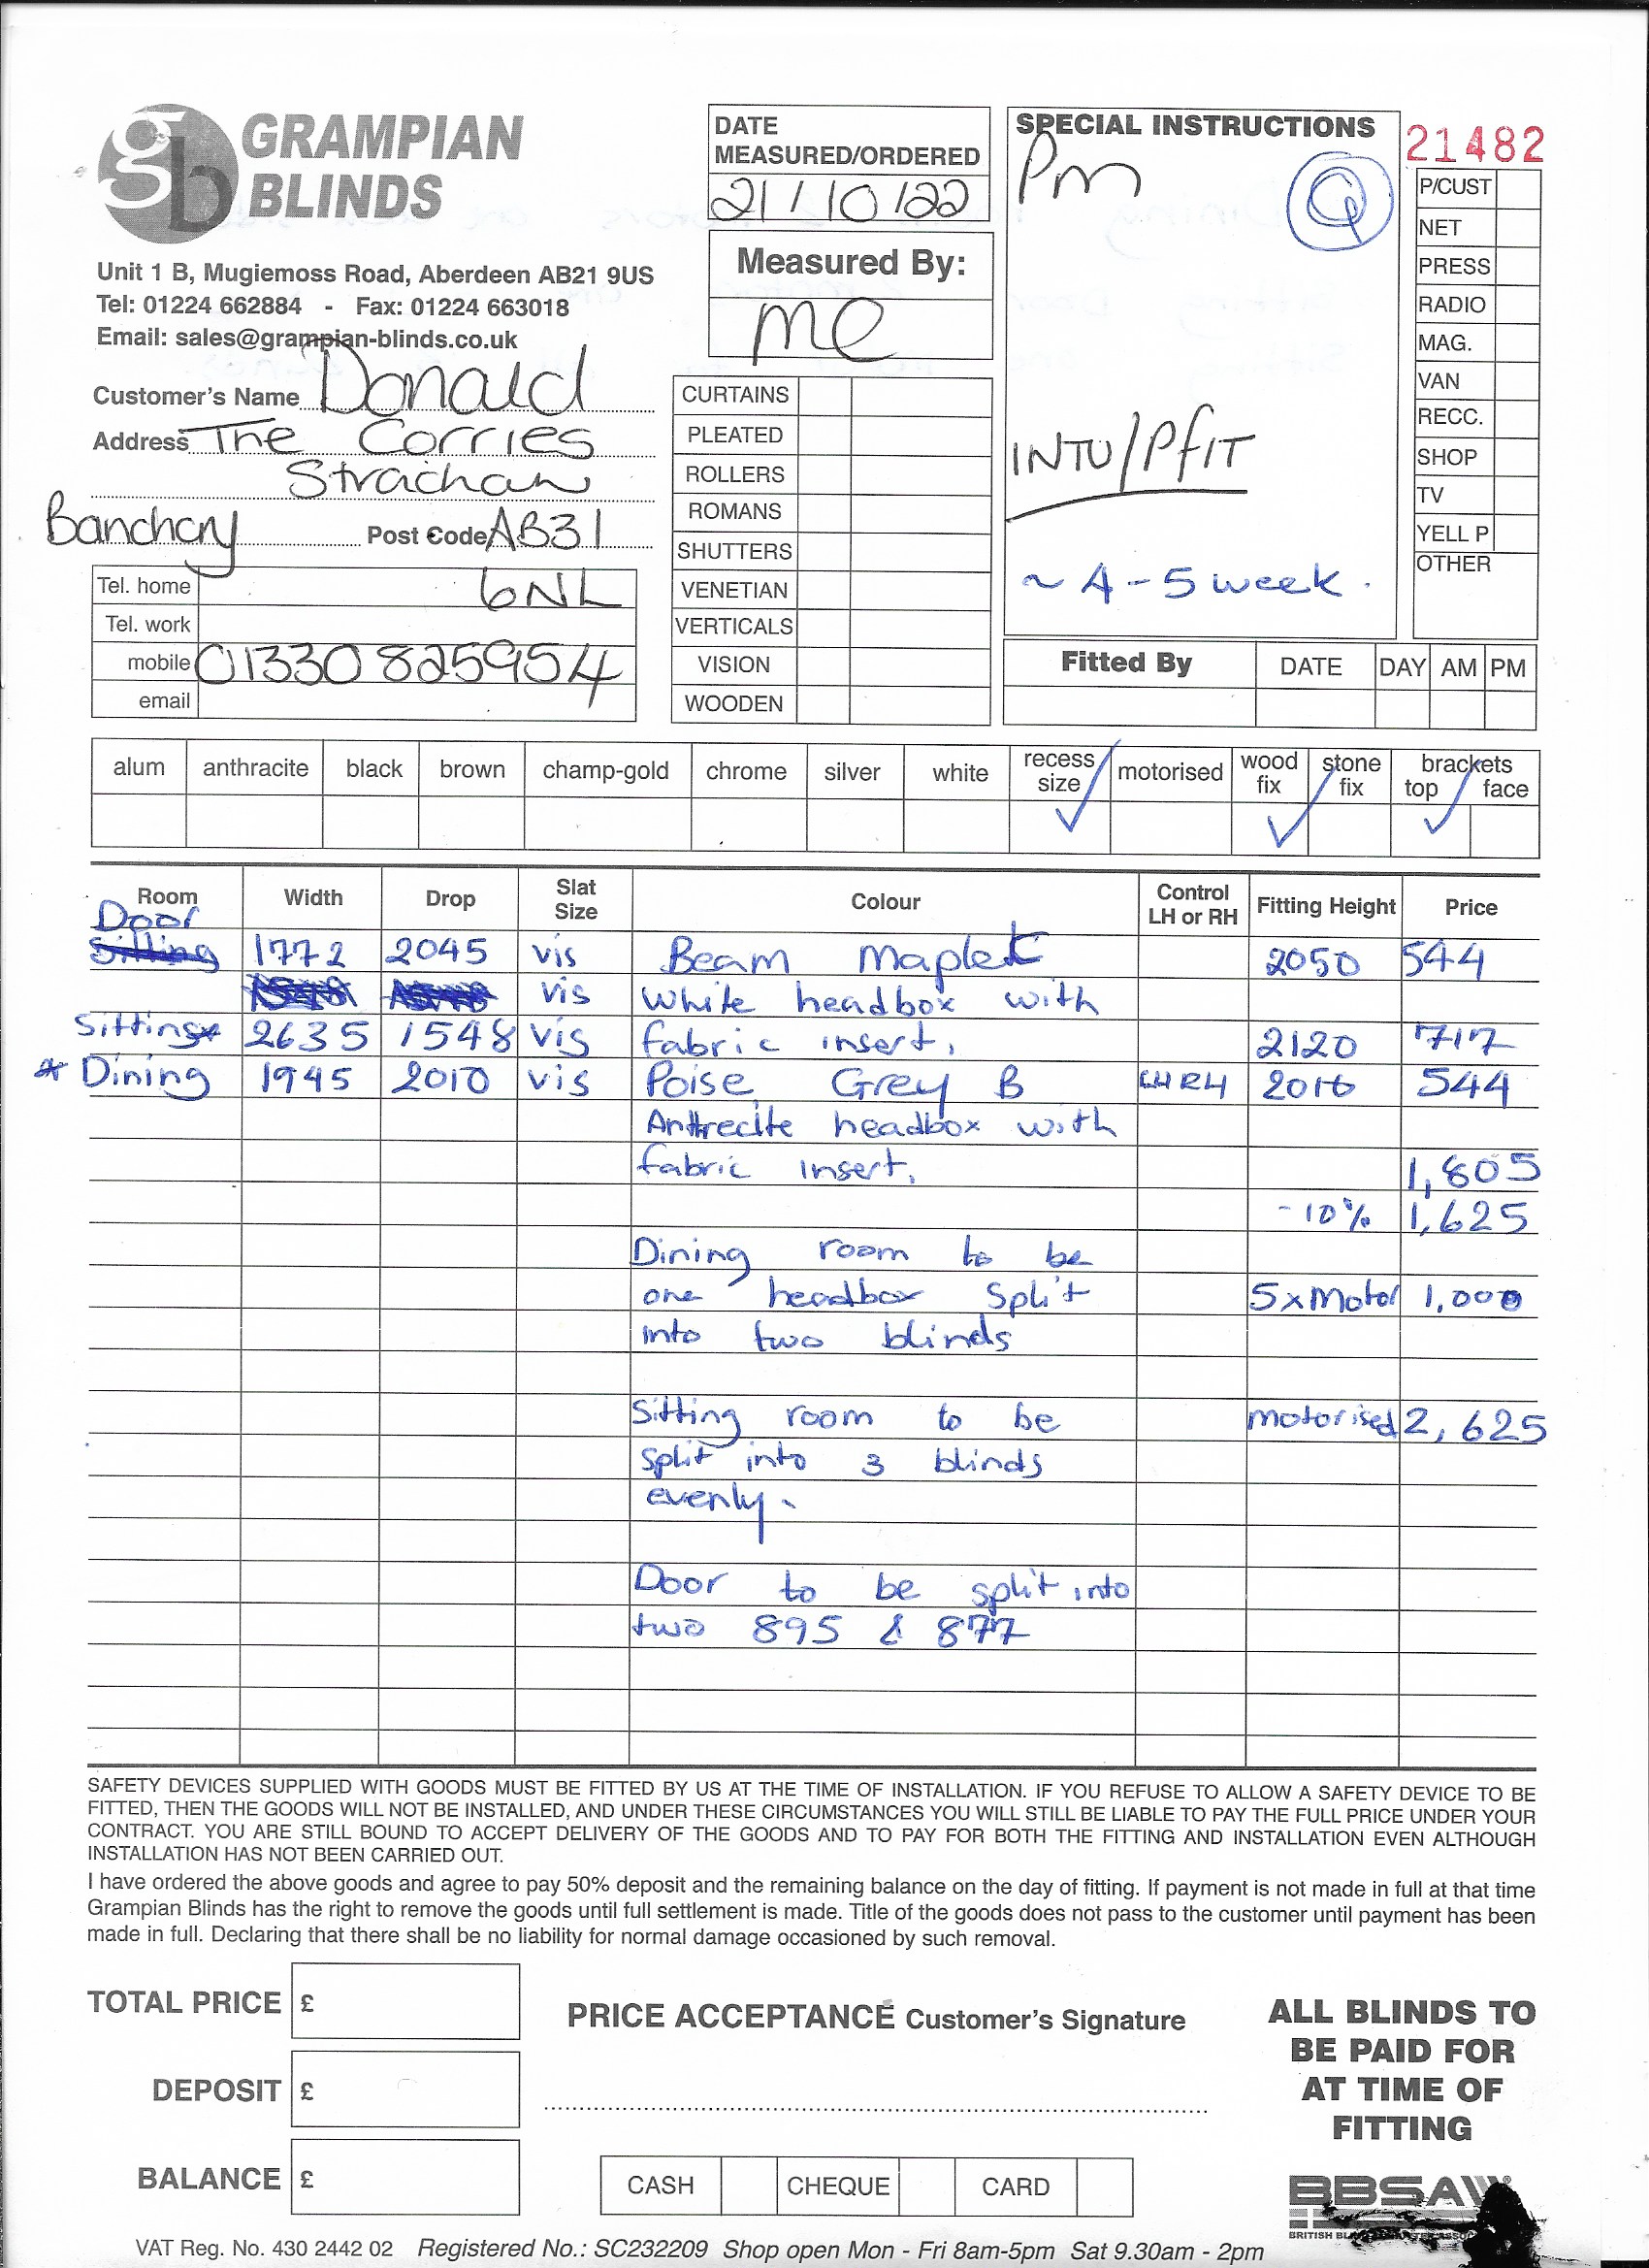 GRAMPIAN
BLINDS
gb
Unit 1 B, Mugiemoss Road, Aberdeen AB21 9US
Tel: 01224 662884 - Fax: 01224 663018
Email: sales@grampian-blinds.co.uk
Customer's Name Donald
Address The Corries
Strachan
Banchory Post Code AB31
6NL
Tel. home
Tel. work
mobile 01330 825954
email
DATE
MEASURED/ORDERED
21/10/22
Measured By:
MC
CURTAINS
PLEATED
ROLLERS
ROMANS
SHUTTERS
VENETIAN
VERTICALS
VISION
WOODEN
SPECIAL INSTRUCTIONS
Pm
Q
INTU/PfIT
~ 4-5 week.
21482
P/CUST
NET
PRESS
RADIO
MAG.
VAN
RECC.
SHOP
TV
YELL P
OTHER
Fitted By DATE DAY AM PM
alum anthracite black brown champ-gold chrome silver white recess size motorised wood fix stone fix brackets top face
Room Width Drop Slat Size Colour Control LH or RH Fitting Height Price
Door 1772 2045 vis Beam Maple 2050 544
vis White headbox with
Sitting 2635 1548 vis fabric insert. 2120 717
* Dining 1945 2010 vis Poise Grey B LH RH 2010 544
Anthrecite headbox with
fabric insert. 1,805
-10% 1,625
Dining room to be
one headbox split 5xMotor 1,000
into two blinds
Sitting room to be motorised 2,625
split into 3 blinds
evenly.
Door to be split into
two 895 & 877
SAFETY DEVICES SUPPLIED WITH GOODS MUST BE FITTED BY US AT THE TIME OF INSTALLATION. IF YOU REFUSE TO ALLOW A SAFETY DEVICE TO BE
FITTED, THEN THE GOODS WILL NOT BE INSTALLED, AND UNDER THESE CIRCUMSTANCES YOU WILL STILL BE LIABLE TO PAY THE FULL PRICE UNDER YOUR
CONTRACT. YOU ARE STILL BOUND TO ACCEPT DELIVERY OF THE GOODS AND TO PAY FOR BOTH THE FITTING AND INSTALLATION EVEN ALTHOUGH
INSTALLATION HAS NOT BEEN CARRIED OUT.
I have ordered the above goods and agree to pay 50% deposit and the remaining balance on the day of fitting. If payment is not made in full at that time
Grampian Blinds has the right to remove the goods until full settlement is made. Title of the goods does not pass to the customer until payment has been
made in full. Declaring that there shall be no liability for normal damage occasioned by such removal.
TOTAL PRICE £
DEPOSIT £
BALANCE £
PRICE ACCEPTANCE Customer's Signature
CASH CHEQUE CARD
ALL BLINDS TO
BE PAID FOR
AT TIME OF
FITTING
BBSA
VAT Reg. No. 430 2442 02 Registered No.: SC232209 Shop open Mon - Fri 8am-5pm Sat 9.30am - 2pm